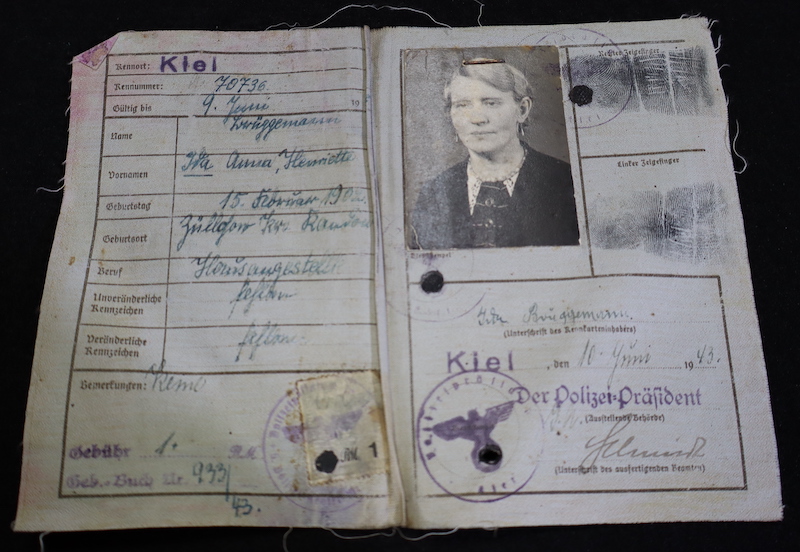 Kennort: Kiel
Kennummer: 70736
Gültig bis 9. Juni 19
Name Brüggemann
Vornamen Ida Anna, Henriette
Geburtstag 15. Februar 190
Geburtsort Züllchow Krs. Randow
Beruf Hausangestellte
Unveränderliche
Kennzeichen fehlen
Veränderliche
Kennzeichen fehlen
Bemerkungen: Keine
Gebühr 1.- R.M.
Geb.-Buch Nr. 933/
43.
RM. 1
Rechter Zeigefinger
Linker Zeigefinger
Ida Brüggemann.
(Unterschrift des Kennkarteninhabers)
Kiel, den 10. Juni 1943.
Der Polizei-Präsident
(Ausstellende Behörde)
Schmidt
(Unterschrift des ausfertigenden Beamten)
Kiel